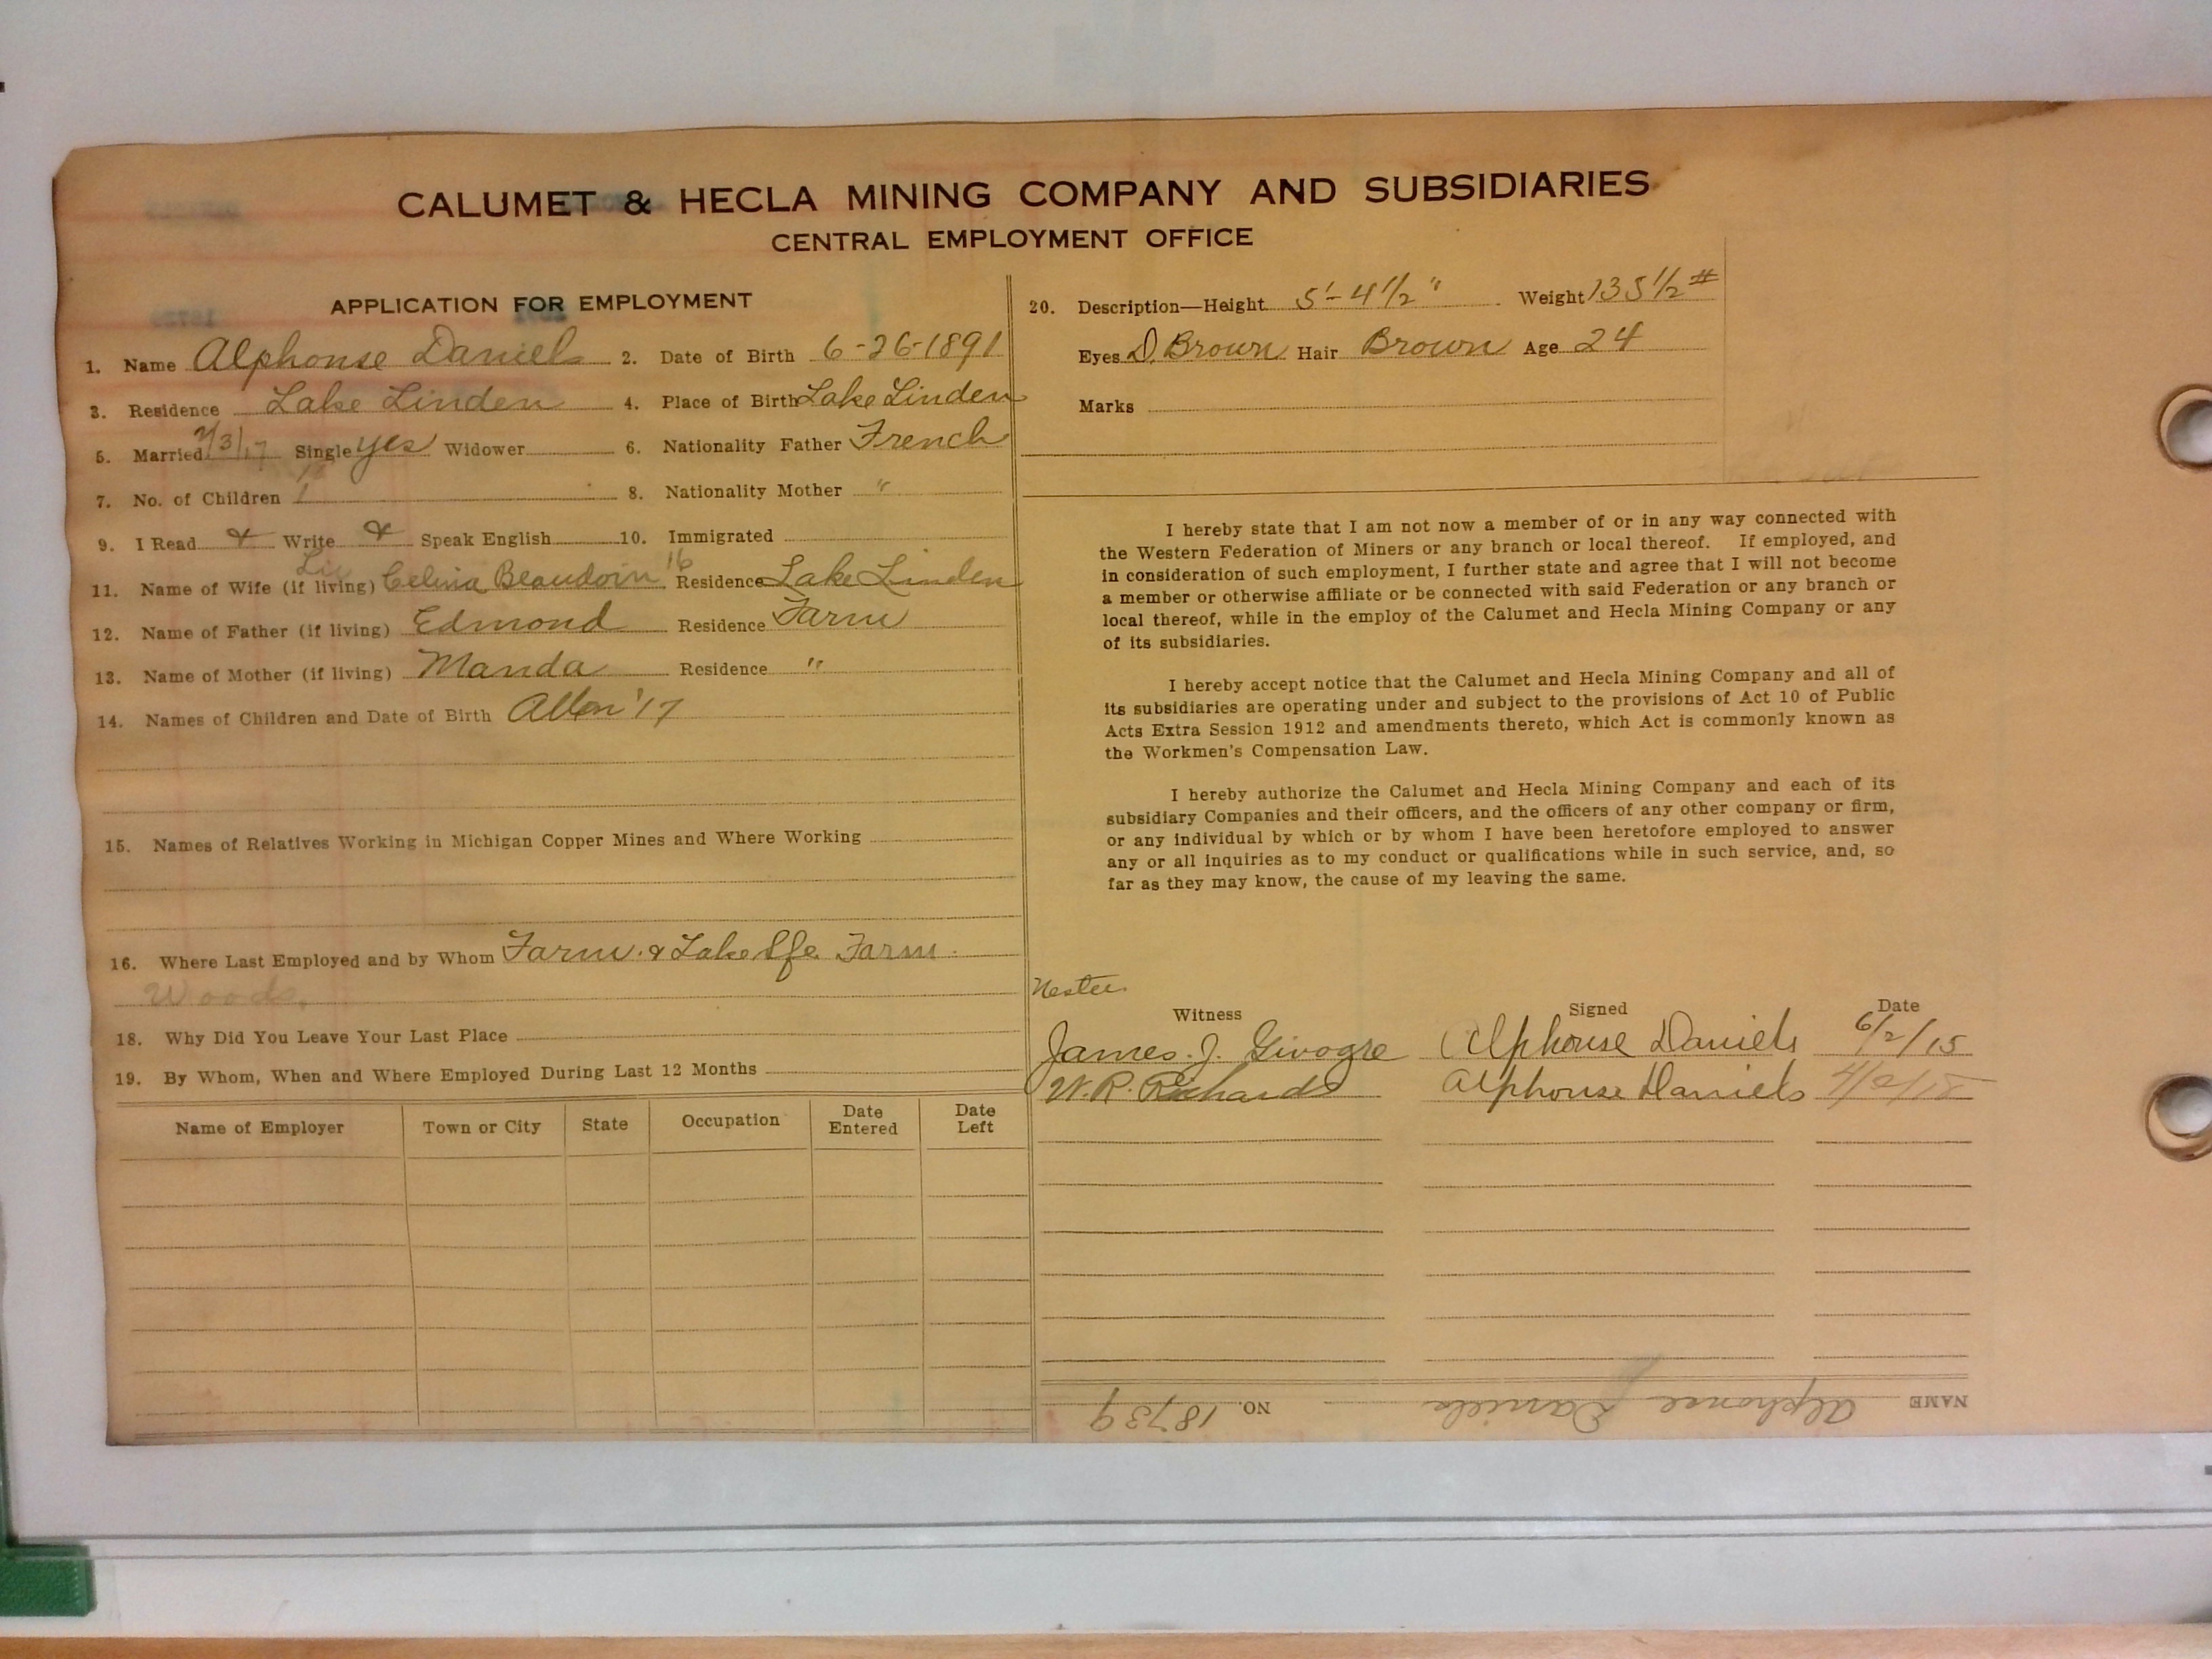 CALUMET & HECLA MINING COMPANY AND SUBSIDIARIES
CENTRAL EMPLOYMENT OFFICE
APPLICATION FOR EMPLOYMENT
1. Name Alphonse Daniels 2. Date of Birth 6-26-1891
3. Residence Lake Linden 4. Place of Birth Lake Linden
5. Married /3/17 Single yes Widower 6. Nationality Father French
7. No. of Children 1 8. Nationality Mother "
9. I Read & Write & Speak English 10. Immigrated
11. Name of Wife (if living) Celina Beaudoin 16 Residence Lake Linden
12. Name of Father (if living) Edmond Residence Farm
13. Name of Mother (if living) Manda Residence "
14. Names of Children and Date of Birth '17
15. Names of Relatives Working in Michigan Copper Mines and Where Working
16. Where Last Employed and by Whom Farm & Lake Farm.
Woods.
18. Why Did You Leave Your Last Place
19. By Whom, When and Where Employed During Last 12 Months
Name of Employer Town or City State Occupation Date Entered Date Left
20. Description—Height 5'-4 1/2" Weight 135 1/2 #
Eyes D. Brown Hair Brown Age 24
Marks
I hereby state that I am not now a member of or in any way connected with
the Western Federation of Miners or any branch or local thereof. If employed, and
in consideration of such employment, I further state and agree that I will not become
a member or otherwise affiliate or be connected with said Federation or any branch or
local thereof, while in the employ of the Calumet and Hecla Mining Company or any
of its subsidiaries.
I hereby accept notice that the Calumet and Hecla Mining Company and all of
its subsidiaries are operating under and subject to the provisions of Act 10 of Public
Acts Extra Session 1912 and amendments thereto, which Act is commonly known as
the Workmen's Compensation Law.
I hereby authorize the Calumet and Hecla Mining Company and each of its
subsidiary Companies and their officers, and the officers of any other company or firm,
or any individual by which or by whom I have been heretofore employed to answer
any or all inquiries as to my conduct or qualifications while in such service, and, so
far as they may know, the cause of my leaving the same.
Witness Signed Date
James. J. Alphonse Daniels 6/2/15
W. R. Richards Alphonse Daniels 4/2/18
NAME Alphonse Daniels NO. 18739